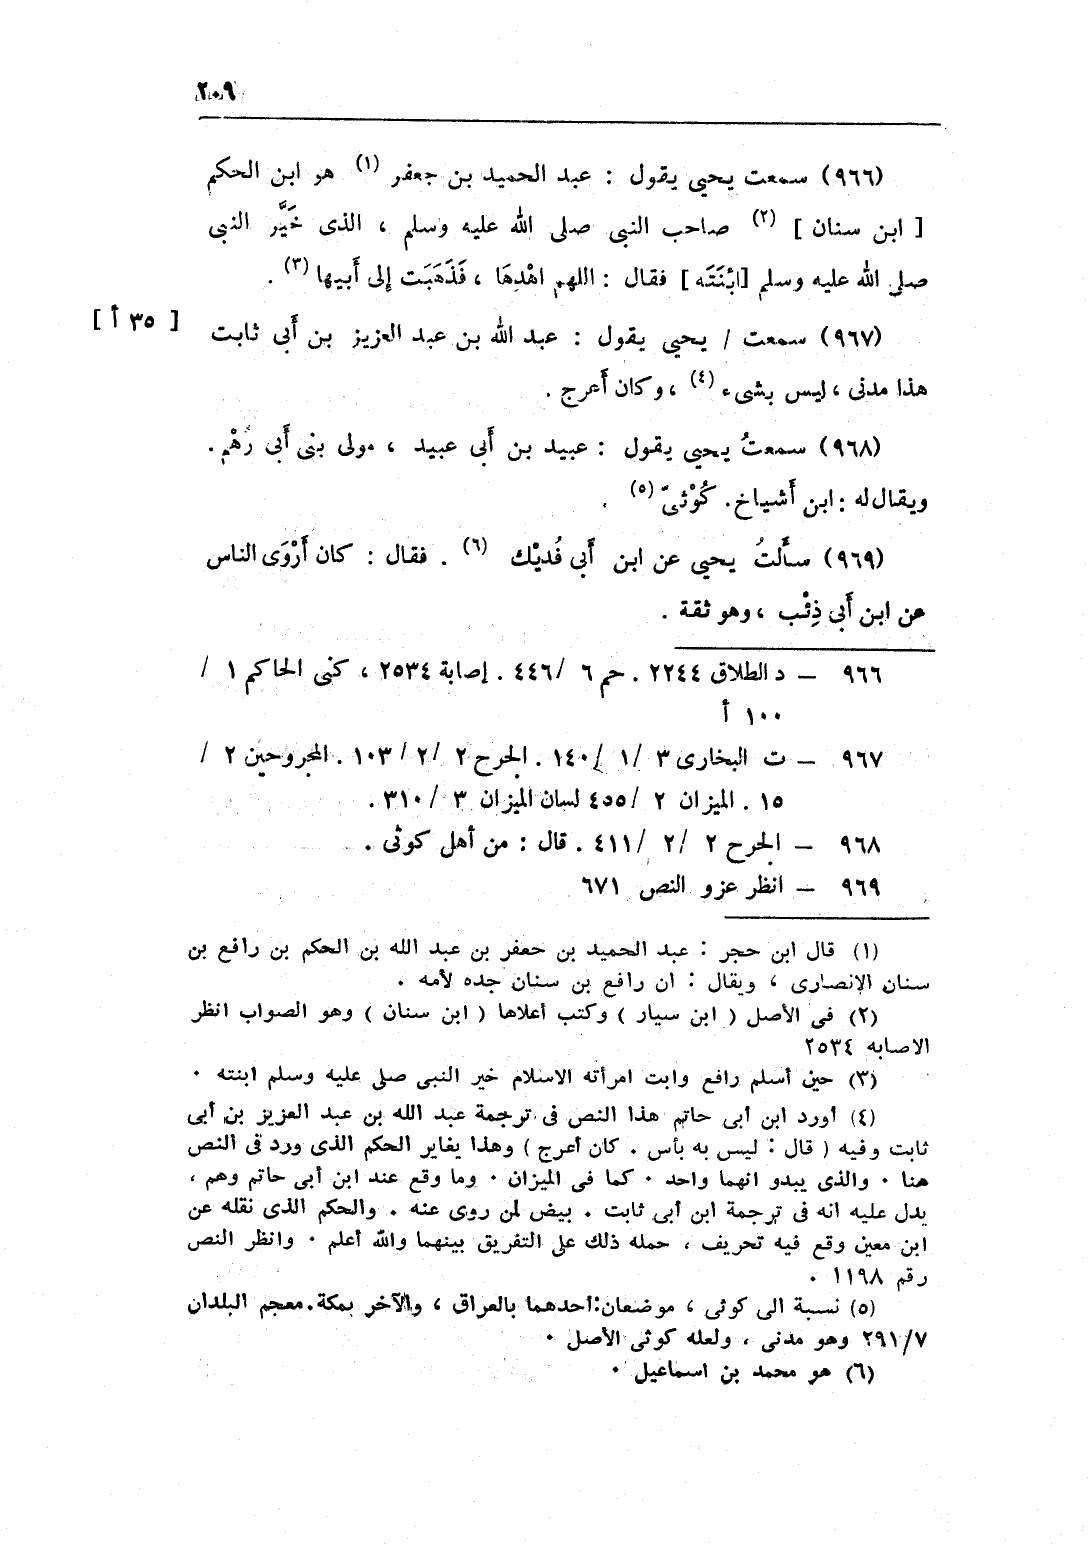 ٢٠٩
(٩٦٦) سمعت يحيى يقول : عبد الحميد بن جعفر (١) هو ابن الحكم
[ ابن سنان ] (٢) صاحب النبى صلى الله عليه وسلم ، الذى خَيَّر النبى
صلى الله عليه وسلم [ابْنَتَه] فقال : اللهم اهْدِهَا ، فَذَهَبَت إلى أَبيها (٣) .
(٩٦٧) سمعت / يحيى يقول : عبد الله بن عبد العزيز بن أَبى ثابت [ ٣٥ أ ]
هذا مدنى ، ليس بشىء (٤) ، وكان أَعرج .
(٩٦٨) سمعتُ يحيى يقول : عبيد بن أَبى عبيد ، مولى بنى أَبى رُهْم .
ويقال له : ابن أَشياخ . كُوْثىّ (٥) .
(٩٦٩) سأَلتُ يحيى عن ابن أَبى فُديْك (٦) . فقال : كان أَرْوَى الناس
عن ابن أَبى ذِئْب ، وهو ثقة .
٩٦٦ – د الطلاق ٢٢٤٤ . حم ٦ /٤٤٦ . إصابة ٢٥٣٤ ، كنى الحاكم ١ /
١٠٠ أ
٩٦٧ – ت البخارى ٣ /١ /١٤٠ . الجرح ٢ /٢ /١٠٣ . المجروحين ٢ /
١٥ . الميزان ٢ /٤٥٥ لسان الميزان ٣ /٣١٠ .
٩٦٨ – الجرح ٢ /٢ /٤١١ . قال : من أهل كوثى .
٩٦٩ – انظر عزو النص ٦٧١
(١) قال ابن حجر : عبد الحميد بن جعفر بن عبد الله بن الحكم بن رافع بن
سنان الانصارى ، ويقال : ان رافع بن سنان جده لأمه .
(٢) فى الأصل ( ابن سيار ) وكتب أعلاها ( ابن سنان ) وهو الصواب انظر
الاصابه ٢٥٣٤
(٣) حين أسلم رافع وابت امرأته الاسلام خير النبى صلى عليه وسلم ابنته .
(٤) أورد ابن أبى حاتم هذا النص فى ترجمة عبد الله بن عبد العزيز بن أبى
ثابت وفيه ( قال : ليس به بأس . كان أعرج ) وهذا يغاير الحكم الذى ورد فى النص
هنا . والذى يبدو انهما واحد . كما فى الميزان . وما وقع عند ابن أبى حاتم وهم ،
يدل عليه انه فى ترجمة ابن أبى ثابت . بيض لمن روى عنه . والحكم الذى نقله عن
ابن معين وقع فيه تحريف ، حمله ذلك على التفريق بينهما والله أعلم . وانظر النص
رقم ١١٩٨ .
(٥) نسبة الى كوثى ، موضعان: أحدهما بالعراق ، والآخر بمكة . معجم البلدان
٢٩١/٧ وهو مدنى ، ولعله كوثى الأصل .
(٦) هو محمد بن اسماعيل .